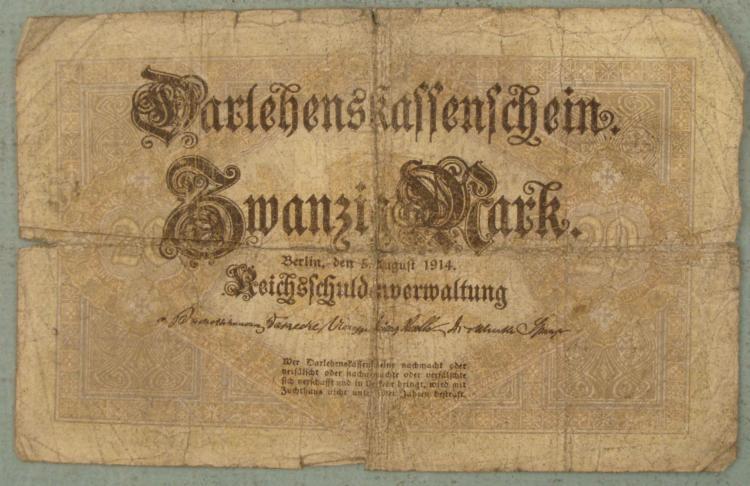 Darlehenskassenschein.
Zwanzig Mark.
20 20
Berlin, den 5. August 1914.
Reichsschuldenverwaltung
Wer Darlehenskassenscheine nachmacht oder
verfälscht oder nachgemachte oder verfälschte
sich verschafft und in Verkehr bringt, wird mit
Zuchthaus nicht unter zwei Jahren bestraft.